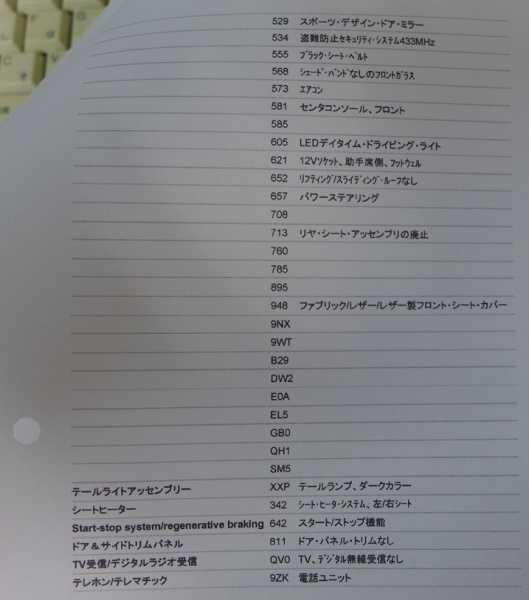 529 スポーツ・デザイン・ドア・ミラー
534 盗難防止セキュリティ・システム433MHz
555 ブラック・シート・ベルト
568 シェード・バンドなしのフロントガラス
573 エアコン
581 センタコンソール、フロント
585
605 LEDデイタイム・ドライビング・ライト
621 12Vソケット、助手席側、フットウェル
652 リフティング/スライディング・ルーフなし
657 パワーステアリング
708
713 リヤ・シート・アッセンブリの廃止
760
785
895
948 ファブリック/レザー/レザー製フロント・シート・カバー
9NX
9WT
B29
DW2
E0A
EL5
GB0
QH1
SM5
テールライトアッセンブリー XXP テールランプ、ダークカラー
シートヒーター 342 シート・ヒータ・システム、左/右シート
Start-stop system/regenerative braking 642 スタート/ストップ機能
ドア＆サイドトリムパネル 811 ドア・パネル・トリムなし
TV受信/デジタルラジオ受信 QV0 TV、デジタル無線受信なし
テレホン/テレマチック 9ZK 電話ユニット